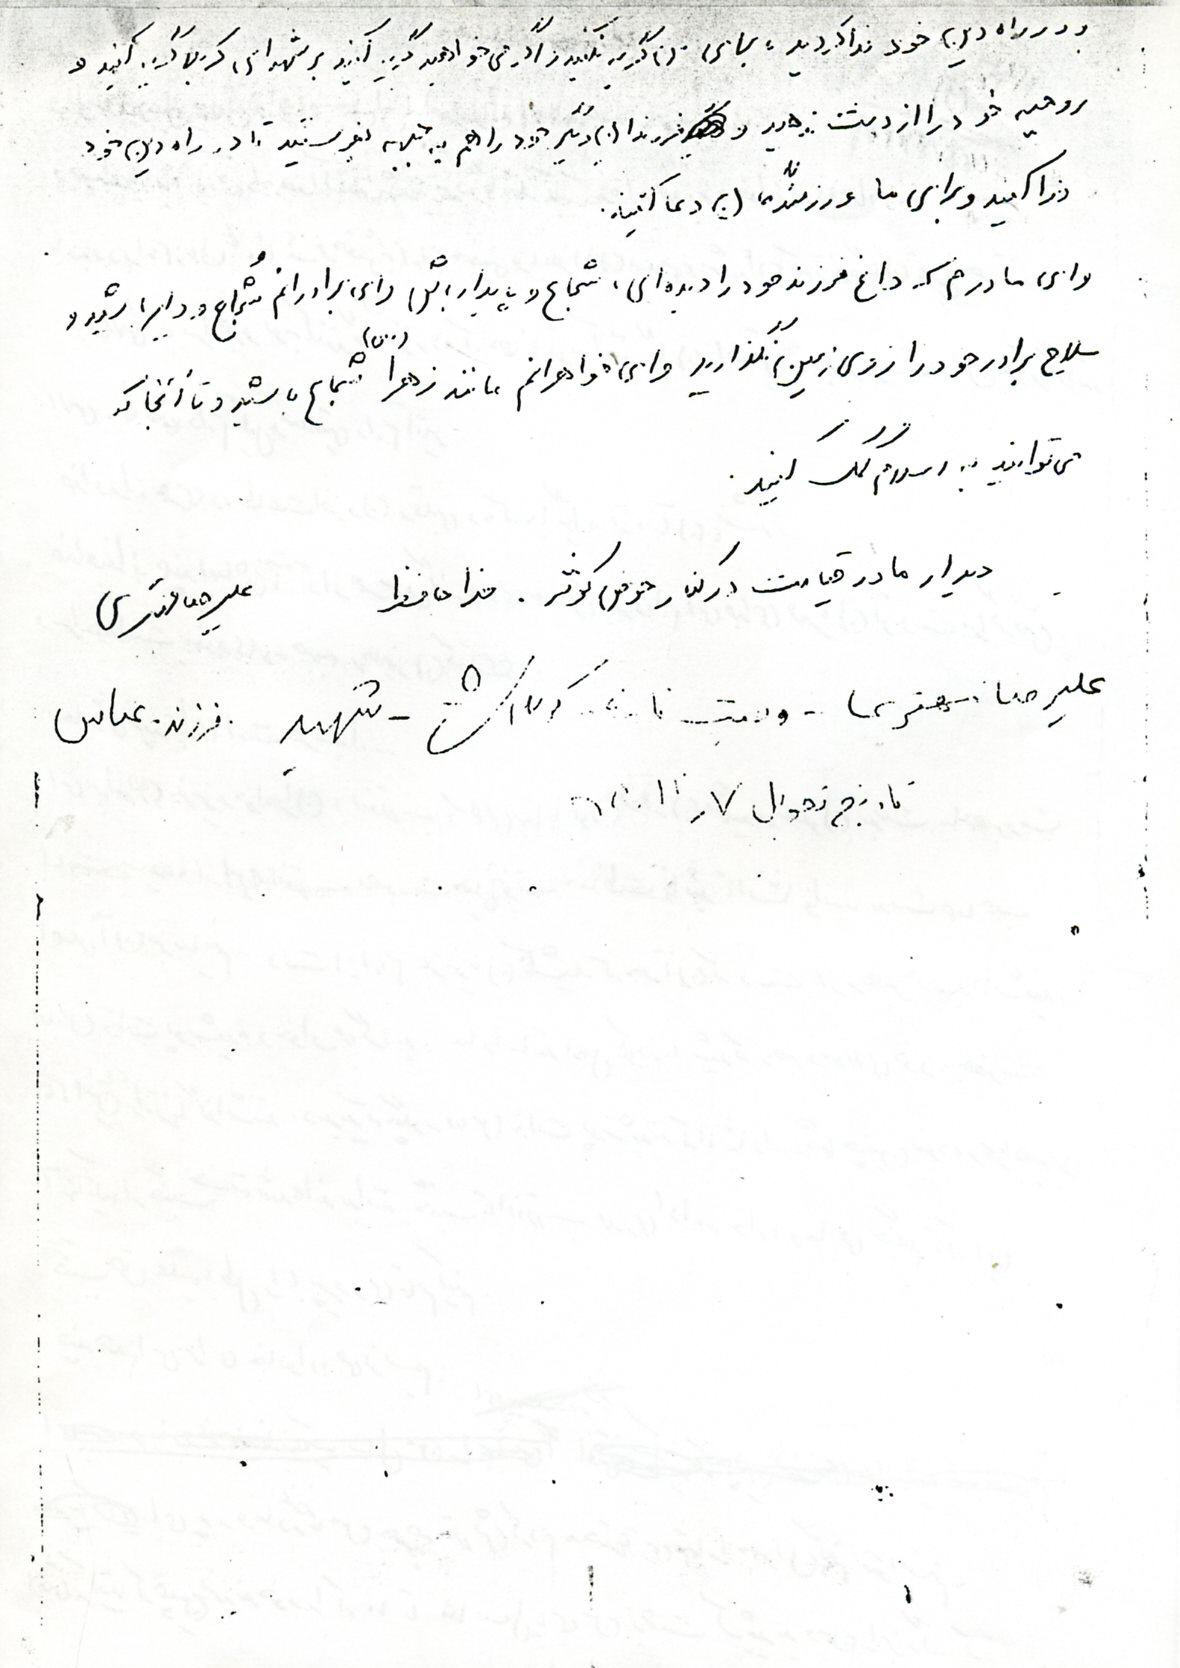 و در راه دین خود فدا کردید، بجای من گریه نکنید و اگر می‌خواهید گریه کنید بر شهدای کربلا گریه کنید و
روحیه خود را از دست ندهید و فرزندان دیگر خود را هم به جبهه بفرستید تا در راه دین خود
فدا کنید و برای ما و رزمندگان دعا کنید.
و ای مادرم که داغ فرزند خود را دیده‌ای، شجاع و پایدار باش و ای برادرانم شجاع و دلیر باشید و
سلاح برادر خود را از روی زمین نگذارید و ای خواهرانم مانند زهرا (س) شجاع باشید و تا آنجا که
می‌توانید به اسلام کمک کنید.
دیدار ما در قیامت در کنار حوض کوثر. خدا حافظ علیرضا
علیرضا - وصیت نامه - شهید - فرزند عباس
تاریخ تحویل